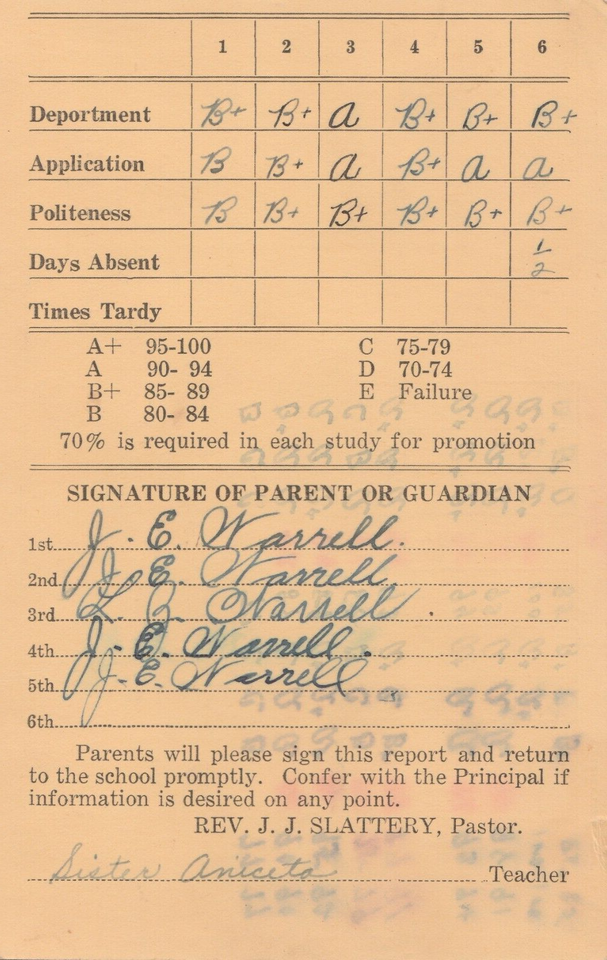 1 2 3 4 5 6
Deportment B+ B+ A B+ B+ B+
Application B B+ A B+ A A
Politeness B B+ B+ B+ B+ B+
Days Absent 1/2
Times Tardy
A+ 95-100 C 75-79
A 90- 94 D 70-74
B+ 85- 89 E Failure
B 80- 84
70% is required in each study for promotion
SIGNATURE OF PARENT OR GUARDIAN
1st J. E. Warrell.
2nd J. E. Warrell
3rd L. B. Warrell.
4th J. E. Warrell.
5th J. E. Warrell
6th
Parents will please sign this report and return
to the school promptly. Confer with the Principal if
information is desired on any point.
REV. J. J. SLATTERY, Pastor.
Sister Aniceta Teacher